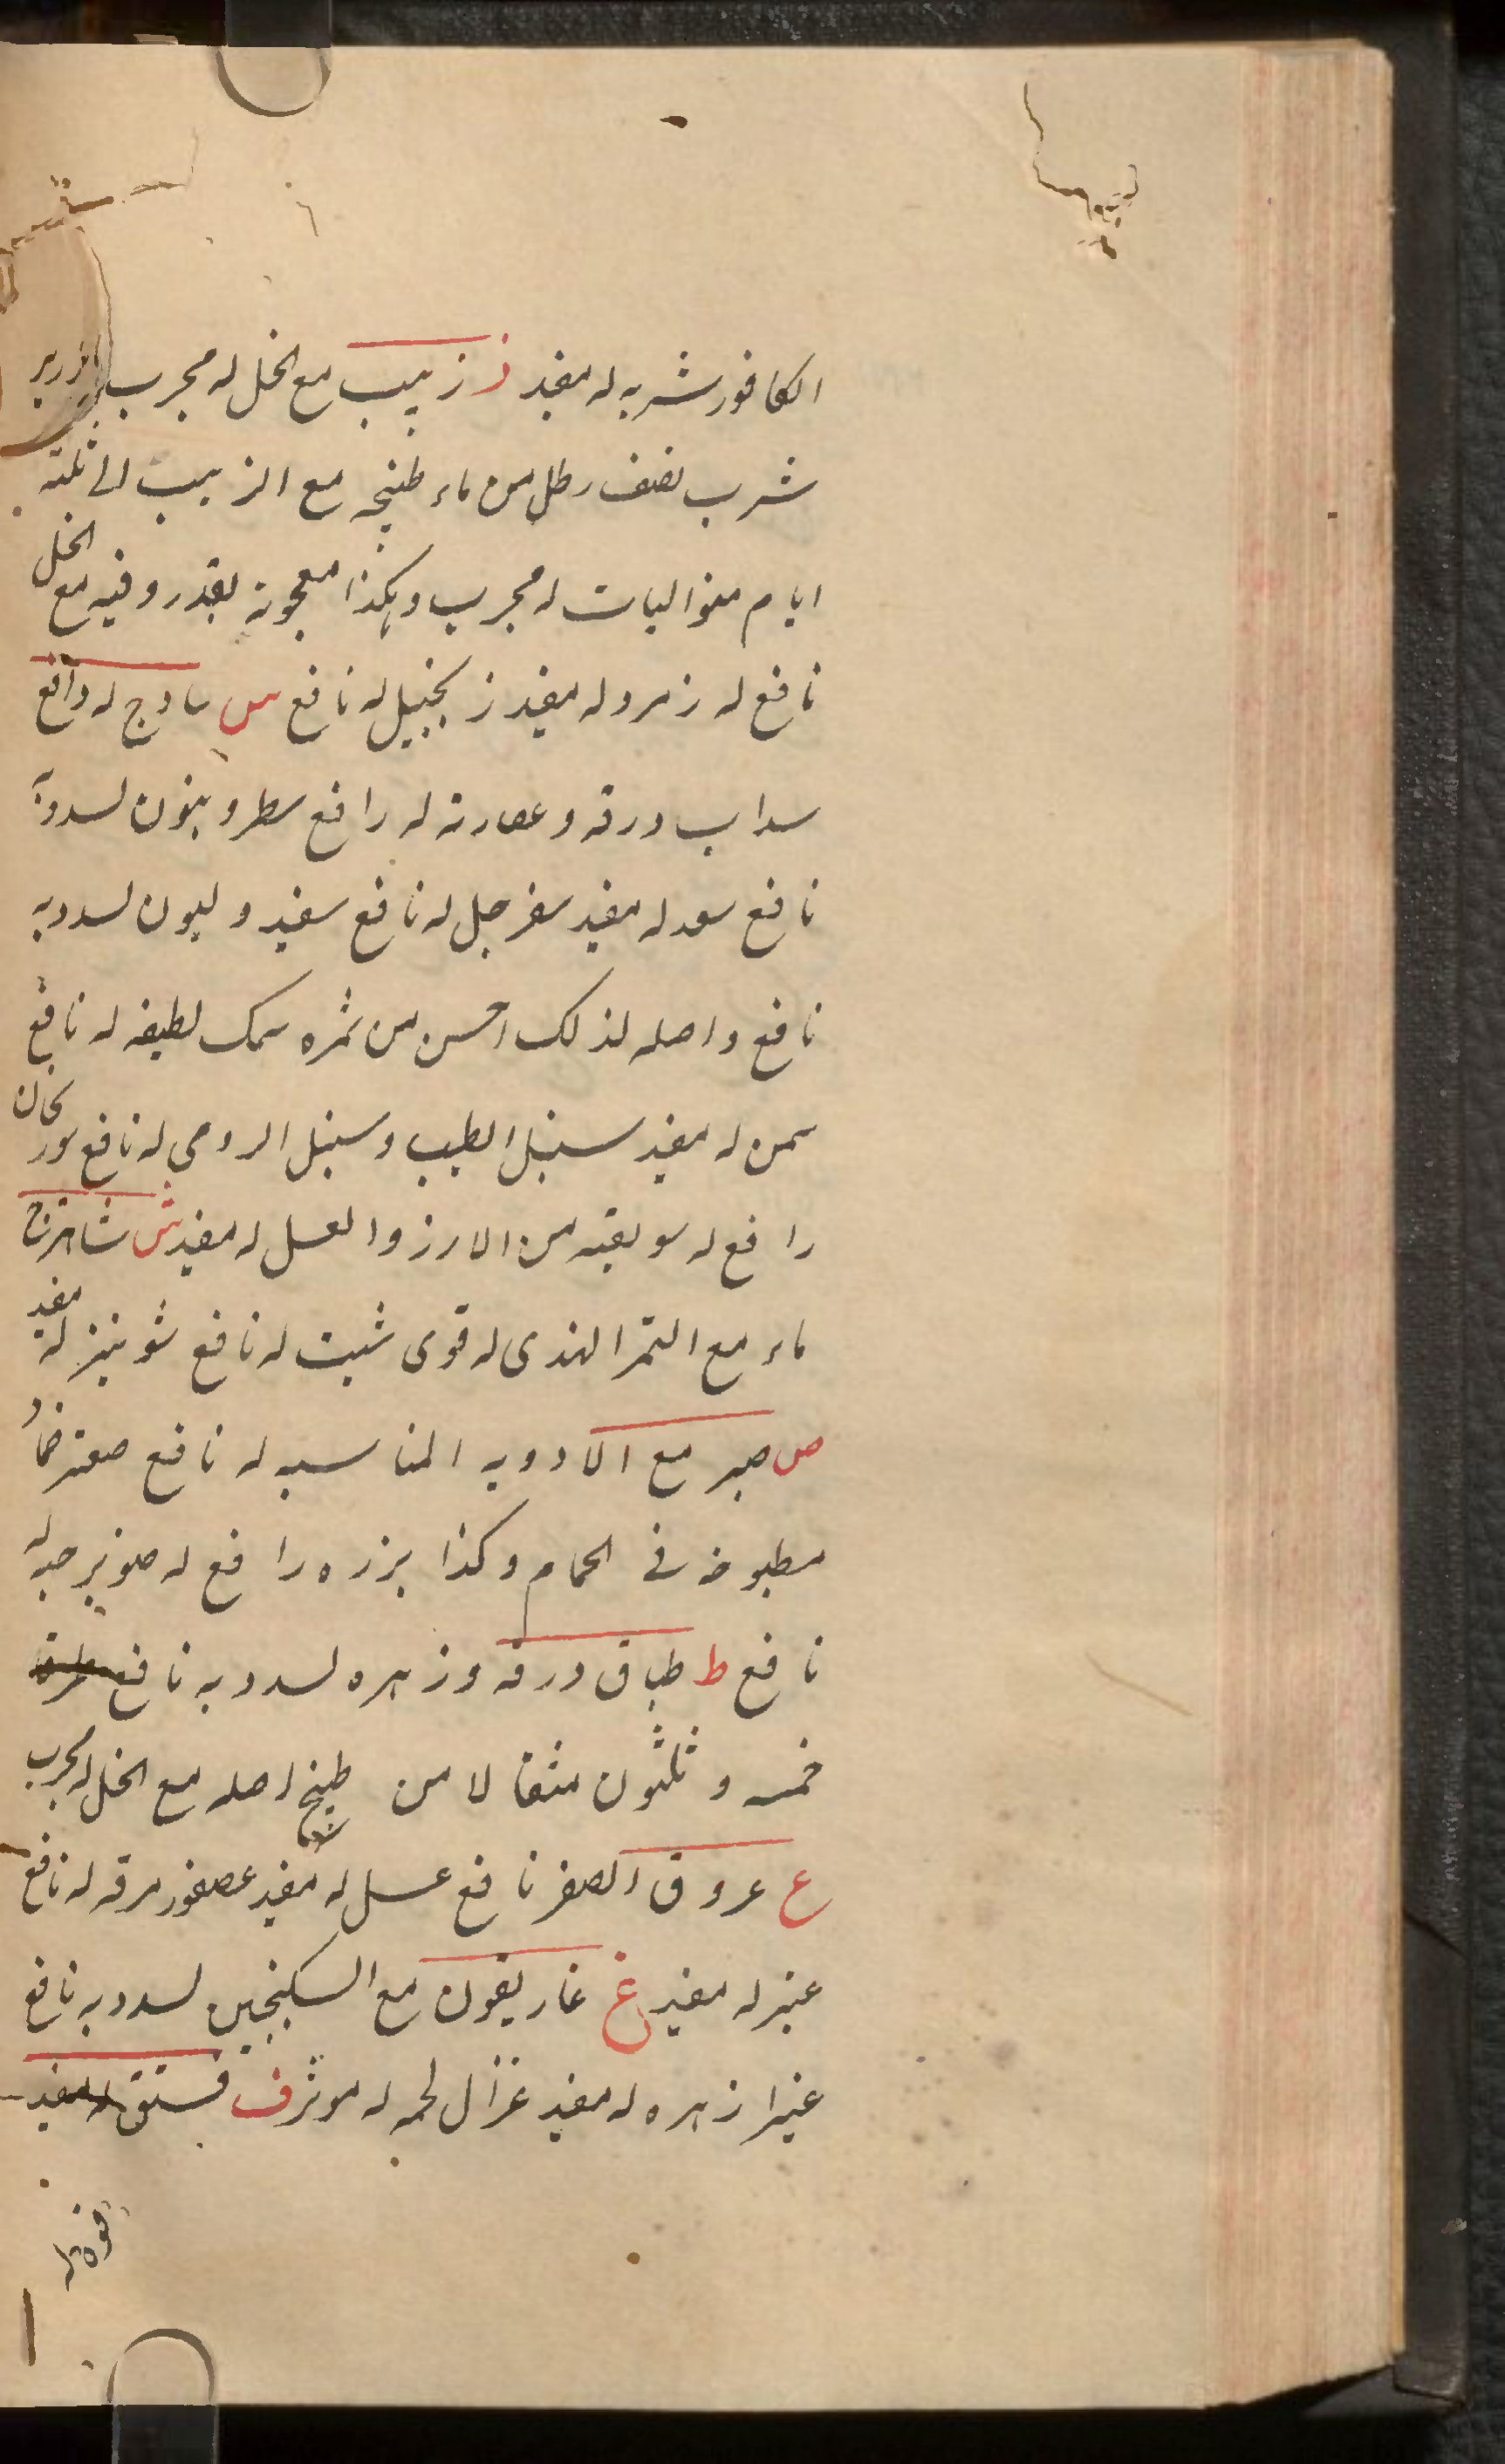 الكافور شربه له مفيد ز زبيب مع الخل له مجرب
شرب نصف رطل من ماء طبخه مع الزبيب الى ثلثة
ايام متواليات له مجرب وهكذا معجونة بقدر وقيه مع الخل
نافع له زمرد له مفيد زنجبيل له نافع س سادج له دافع
سداب ورقه وعصارته له رافع سطرونيون لسدده
نافع سعد له مفيد سفرجل له نافع سفيدوليون لسدديه
نافع واصله لذلك احسن من ثمره سمك لطيفه له نافع
سمن له مفيد سنبل الطيب وسنبل الرومي له نافع سورنجان
رافع له سويقه من الارز والعسل له مفيد ش شاهترج
ماء مع التمر الهندى له قوى شبت له نافع شونيز له مفيد
ص صبر مع الادويه المناسبه له نافع صعتر ضمادا
مطبوخه فى الحمام وكذا بزره رافع له صنوبر حبه له
نافع ط طباق ورقه وزهره لسدديه نافع طرفا
خمسه وثلثون مثقالا من طبيخ اصله مع الخل له مجرب
ع عروق الصفر نافع عسل له مفيد عصفور مرقه له نافع
عنبر له مفيد غ غاريقون مع السكنجبين لسدديه نافع
غبيرا زهره له مفيد غزال لحمه له موثر ف فستق له مفيد
فوه له